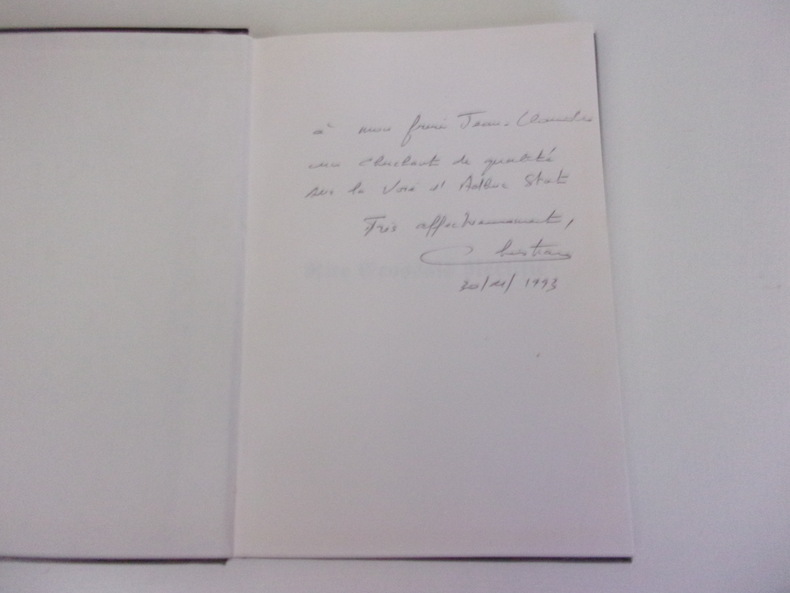 à mon frère Jean-Claude
un cherchant de qualité
sur la Voie d'Adhuc Stat
Très affectueusement,
Christian
1993